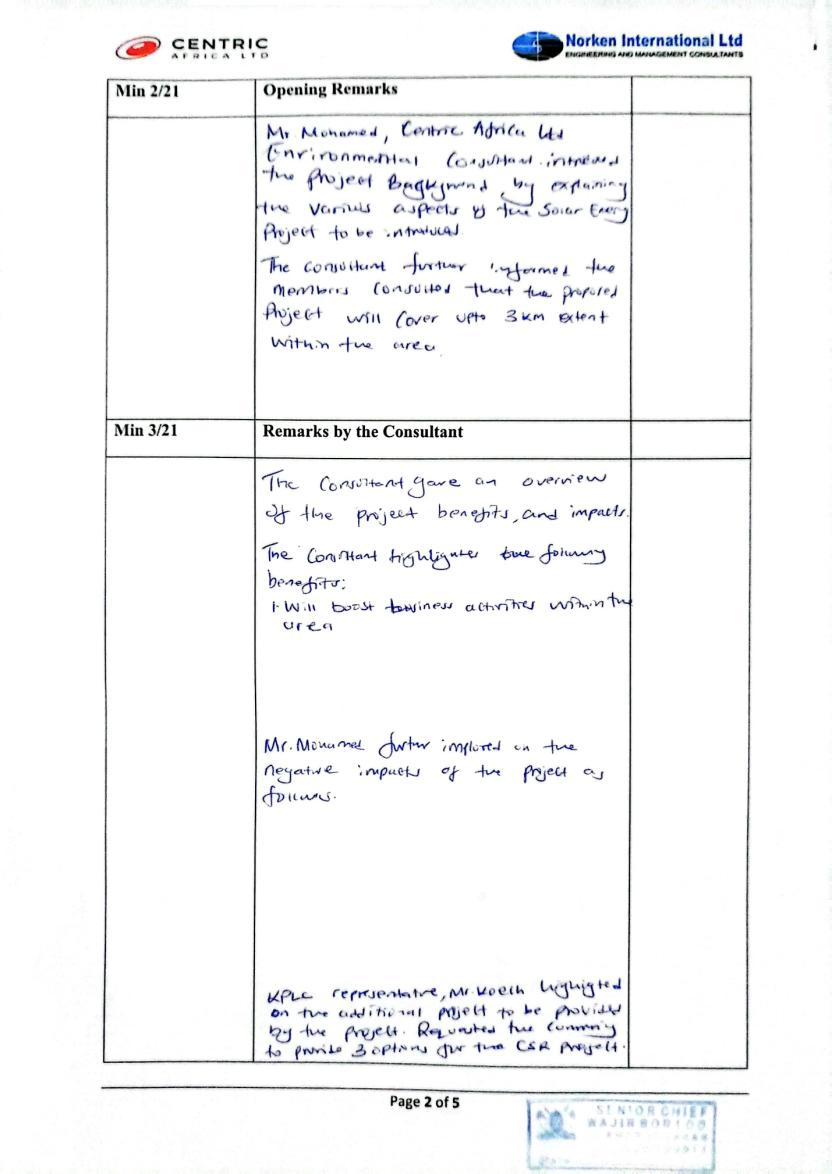 CENTRIC
AFRICA LTD
Norken International Ltd
ENGINEERING AND MANAGEMENT CONSULTANTS
Min 2/21
Opening Remarks
Mr Mohamed, Centric Africa Ltd
Environmental Consultant introduced
the Project Background, by explaining
the various aspects of the Solar Energy
Project to be introduced.
The consultant further informed the
members consulted that the proposed
Project will cover upto 3 km extent
within the area
Min 3/21
Remarks by the Consultant
The Consultant gave an overview
of the project benefits, and impacts.
The Consultant highlighted the following
benefits:
1. Will boost business activities within the
area
Mr. Mohamed further implored on the
negative impacts of the project as
follows.
KPLC representative, Mr. Koech highlighted
on the additional project to be provided
by the project. Requested the community
to provide 3 options for the CSR project.
Page 2 of 5
SENIOR CHIEF
WAJIR BOR LOC